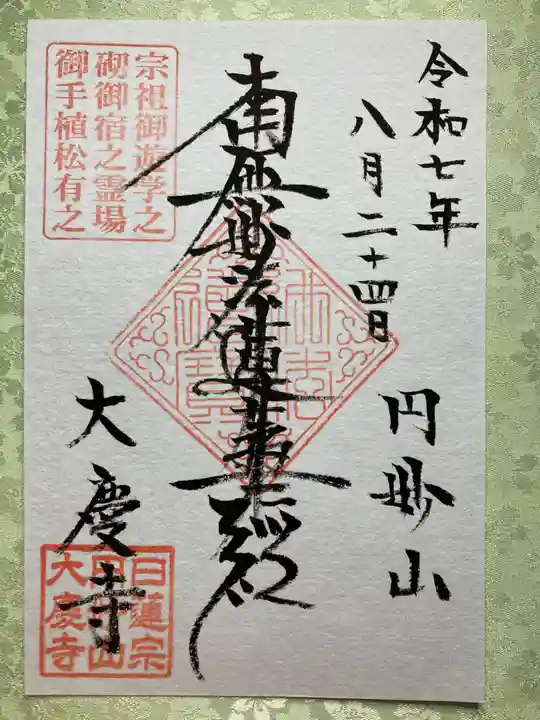 令和七年
八月二十四日
円妙山
南無妙法蓮華経
大慶寺
宗祖御遊学之
砌御宿之霊場
御手植松有之
日蓮宗
円妙山
大慶寺